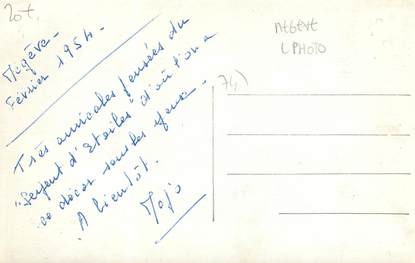 20t
Megève -
Février 1954.
Très amicales pensées du
"Sergent d'Etoiles" d'où l'on a
ce décor sous les yeux -
A bientôt.
Mojo
MEGEVE
CPHOTO
74)